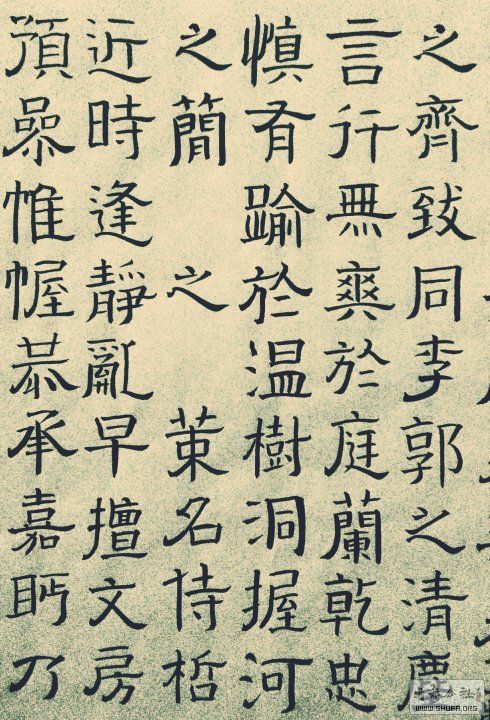 之齊致同李郭之清塵
言行無爽於庭蘭乾忠
慎有踰於温樹洞握河
之簡 之策名侍
近時逢靜亂早擅文房
預參帷幄恭承嘉眄乃
WWW.SHUFA.ORG